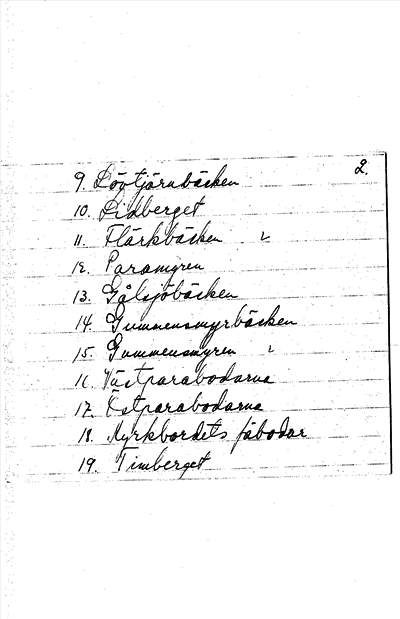 2.
9. Lövtjärnbäcken
10. Lidberget
11. Flärkbäcken
12. Paramyren
13. Gålsjöbäcken
14. Gummensmyrbäcken
15. Gummensmyren
16. Västparabodarna
17. Östparabodarna
18. Myrkbordets fäbodar
19. Timberget